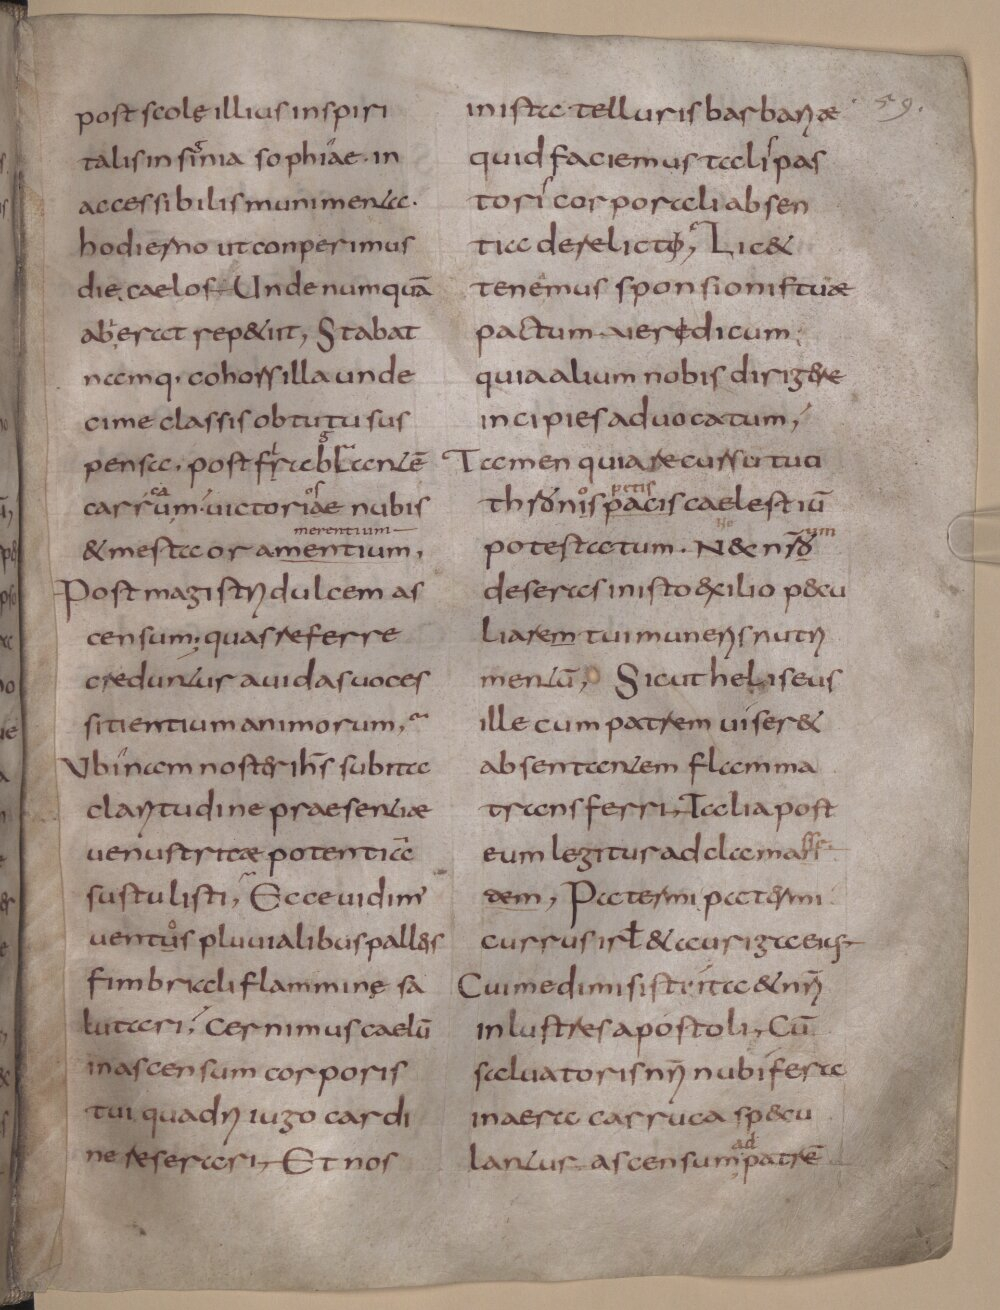 post scolę illius inspiri
talis insinia sophiae· in
accessibilis munimenta·
hodierno ut conperimus
die, caelos· Unde numquā
aberrat rep&iit, Stabat
namq· cohors illa unde
cime classis obtutu sus
pensa· post
carrum· uictoriae nubis
merentium
& mesta oramentium,
Post magistri dulcem as
censum; quas referre
creduntur auidas uoces
sitientium animorum,
Ubinam noster ihs̄ subita
claritudine praesentiae
uenustratae potentia
sustulisti, Ecce uidim'
uentus pluuialibus pallens
fimbriali flammine sa
lutari, Cernimus caelū
in ascensum corporis
tui quadriiugo cardi
ne reserari, Et nos
59.
in ista telluris barbariae
quid faciemus tali pas
tori corporali absen
tia derelicto, Lic&
tenemus sponsionis tuae
pactum
quia alium nobis dirigere
incipies aduocatum,
Tamen quia recursu tuti
thronos pacis caelestiū
potestatum· N&
deseras in isto exilio pecu
liarem tui muneris nutri
mentū, Sicut heliseus
ille cum patrem uiser&
absentantem flamma
transferri, Talia post
eum legitur adclamasse
dem, Pater mi pater mi
currus isrł & auriga eius,
Cui me dimisisti, ita & nr̄i
inlustres apostoli, Cū
saluatoris nr̄i nubifera
in aera carruca specu
ad
lantur ascensum patrē